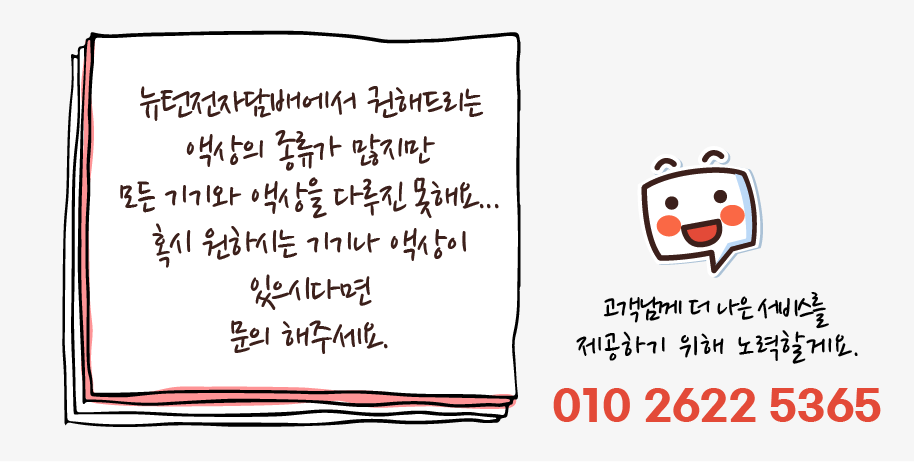 뉴턴전자담배에서 권해드리는
액상의 종류가 많지만
모든 기기와 액상을 다루진 못해요...
혹시 원하시는 기기나 액상이
있으시다면
문의 해주세요.
고객님께 더 나은 서비스를
제공하기 위해 노력할게요.
010 2622 5365